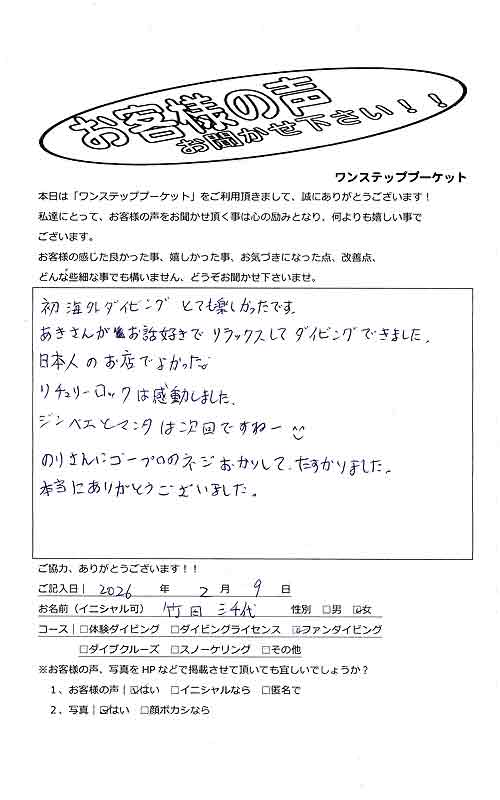 お客様の声
お聞かせ下さい！！
ワンステッププーケット
本日は「ワンステッププーケット」をご利用頂きまして、誠にありがとうございます！
私達にとって、お客様の声をお聞かせ頂く事は心の励みとなり、何よりも嬉しい事で
ございます。
お客様の感じた良かった事、嬉しかった事、お気づきになった点、改善点、
どんな些細な事でも構いません、どうぞお聞かせ下さいませ。
初海外ダイビング とても楽しかったです。
あきさんが お話好きで リラックスして ダイビングできました。
日本人のお店でよかった
リチェリーロックは感動しました。
ジンベエとマンタは次回ですねー
のりさんにゴープロのネジおかりして、たすかりました。
本当にありがとうございました。
ご協力、ありがとうございます！！
ご記入日| 2026 年 2 月 9 日
お名前（イニシャル可） 竹田 三千代 性別 □男 ☑女
コース| □体験ダイビング □ダイビングライセンス ☑ファンダイビング
□ダイブクルーズ □スノーケリング □その他
※お客様の声、写真をHPなどで掲載させて頂いても宜しいでしょうか？
1、お客様の声| ☑はい □イニシャルなら □匿名で
2、写真| ☑はい □顔ボカシなら